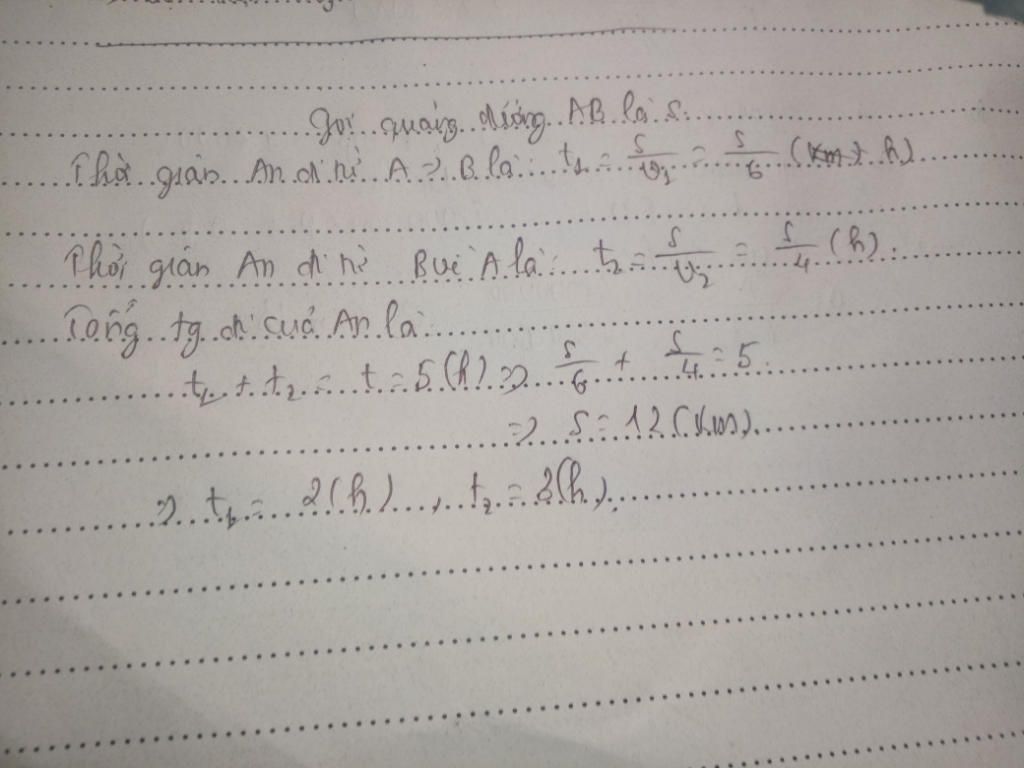 Gọi quãng đường AB là S.
Thời gian An đi từ A → B là: t₁ = S/v₁ = S/6 (h)
Thời gian An đi từ B về A là: t₂ = S/v₂ = S/4 (h).
Tổng tg đi của An là:
t₁ + t₂ = t = 5 (h) => S/6 + S/4 = 5.
=> S = 12 (km).
=> t₁ = 2 (h), t₂ = 3 (h).